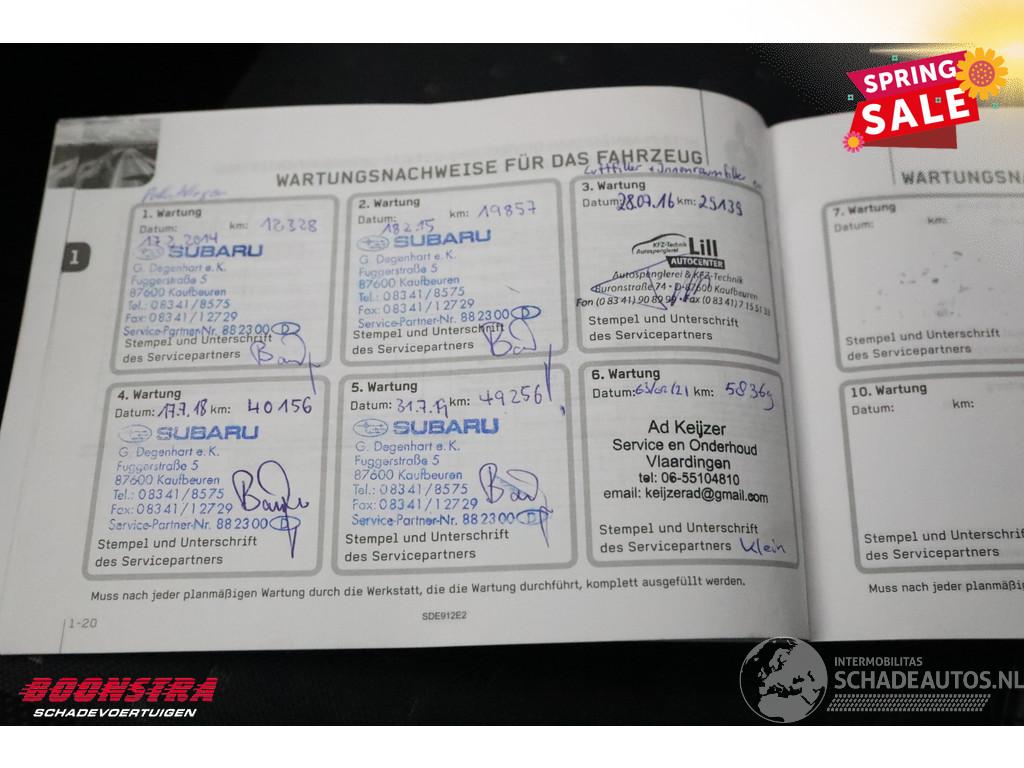 SPRING
SALE
WARTUNGSNACHWEISE FÜR DAS FAHRZEUG
Luftfilter + Innenraumfilter
1. Wartung
Datum: km: 12328
17.2.2014
SUBARU
G. Degenhart e. K.
Fuggerstraße 5
87600 Kaufbeuren
Tel.: 08341/8575
Fax: 08341/12729
Service-Partner-Nr. 882300 D
Stempel und Unterschrift
des Servicepartners
2. Wartung
Datum: km: 19857
18.2.15
SUBARU
G. Degenhart e. K.
Fuggerstraße 5
87600 Kaufbeuren
Tel.: 08341/8575
Fax: 08341/12729
Service-Partner-Nr. 882300 D
Stempel und Unterschrift
des Servicepartners
3. Wartung
Datum: 28.07.16 km: 29139
KFZ-Technik
Autospenglerei
Lill
AUTOCENTER
Autospenglerei & KFZ-Technik
Buronstraße 74 • D-87600 Kaufbeuren
Fon (0 83 41) 90 89 99 • Fax (0 83 41) 7 15 51 33
Stempel und Unterschrift
des Servicepartners
4. Wartung
Datum: 17.7.18 km: 40156
SUBARU
G. Degenhart e. K.
Fuggerstraße 5
87600 Kaufbeuren
Tel.: 08341/8575
Fax: 08341/12729
Service-Partner-Nr. 882300 D
Stempel und Unterschrift
des Servicepartners
5. Wartung
Datum: 31.7.19 km: 49256
SUBARU
G. Degenhart e. K.
Fuggerstraße 5
87600 Kaufbeuren
Tel.: 08341/8575
Fax: 08341/12729
Service-Partner-Nr. 882300 D
Stempel und Unterschrift
des Servicepartners
6. Wartung
Datum: km: 58369
Ad Keijzer
Service en Onderhoud
Vlaardingen
tel: 06-55104810
email: keijzerad@gmail.com
Stempel und Unterschrift
des Servicepartners Klein
Muss nach jeder planmäßigen Wartung durch die Werkstatt, die die Wartung durchführt, komplett ausgefüllt werden.
1-20
SDE912E2
1
WARTUNGSNA
7. Wartung
Datum: km:
Stempel und Unterschrift
des Servicepartners
10. Wartung
Datum: km:
Stempel und Unterschrift
des Servicepartners
Muss nach jeder planmäßigen
BOONSTRA
SCHADEVOERTUIGEN
INTERMOBILITAS
SCHADEAUTOS.NL